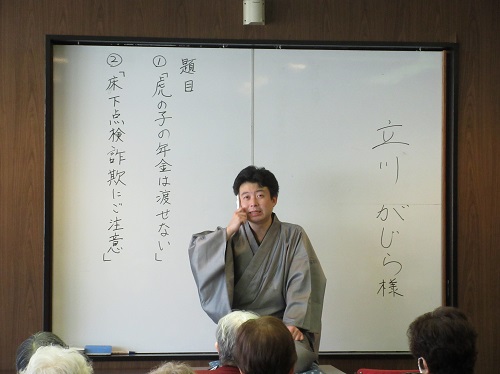 立川 がじら様
題目
①「虎の子の年金は渡せない」
②「床下点検詐欺にご注意」